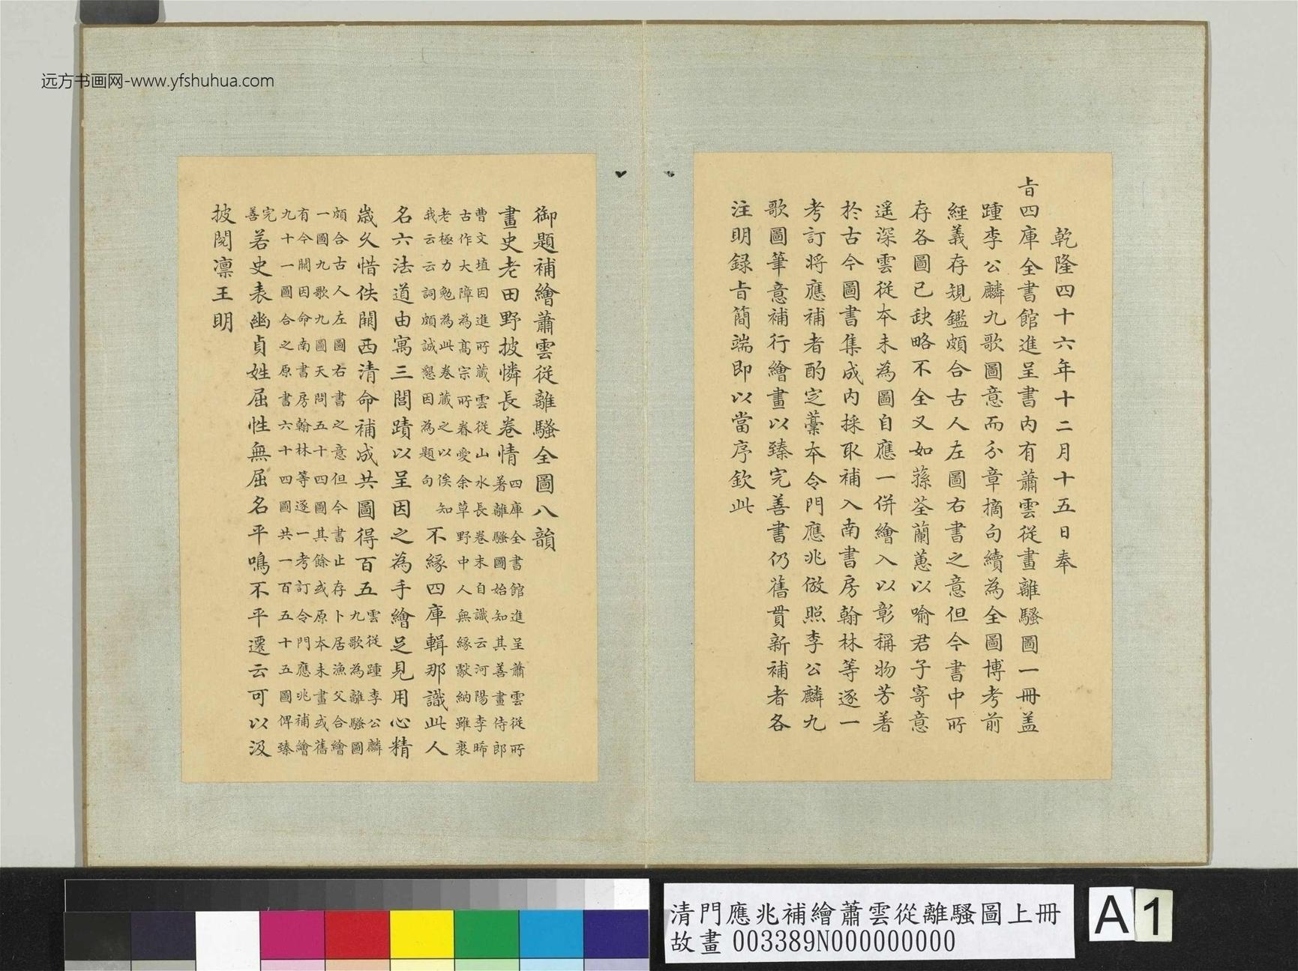 远方书画网-www.yfshuhua.com
乾隆四十六年十二月十五日奉
旨四庫全書館進呈書內有蕭雲從畫離騷圖一冊蓋
踵李公麟九歌圖意而分章摘句續為全圖博考前
經義存規鑑頗合古人左圖右書之意但今書中所
存各圖已缺略不全又如蓀荃蘭蕙以喻君子寄意
遥深雲從本未為圖自應一併繪入以彰稱物芳著
於古今圖書集成內採取補入南書房翰林等逐一
考訂將應補者酌定藁本令門應兆倣照李公麟九
歌圖筆意補行繪畫以臻完善書仍舊貫新補者各
注明錄旨簡端即以當序欽此
御題補繪蕭雲從離騷全圖八韻
畫史老田野披憐長卷情
四庫全書館進呈蕭雲從所
著離騷圖始知其善畫侍郎
曹文埴因進所藏雲從山水長卷末自識云河陽李晞
古作大障為高宗所眷愛余草野中人無緣獻納雖衰
老極力勉為此卷藏之以俟知
我云云詞頗誠懇因為題句
不緣四庫輯那識此人
名六法道由寓三閭蹟以呈因之為手繪足見用心精
歲久惜佚闕西清命補成共圖得百五
雲從踵李公麟
九歌為離騷圖
頗合古人左圖右書之意但今書止存卜居漁父合繪
一圖九歌九圖天問五十四圖其餘或原本未畫或舊
有今闕因命南書房翰林等逐一考訂令門應兆補繪
九十一圖合之原書六十四圖共一百五十五圖俾臻
完
善
若史表幽貞姓屈性無屈名平鳴不平遷云可以汲
披閱凛王明
清門應兆補繪蕭雲從離騷圖上冊
故畫 003389N000000000
A 1